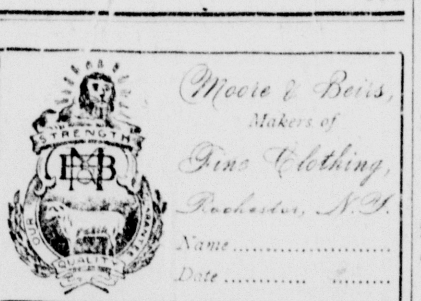 STRENGTH
MB
OUR GUARANTEE
QUALITY
Moore & Beirs,
Makers of
Fine Clothing,
Rochester, N.Y.
Name
Date